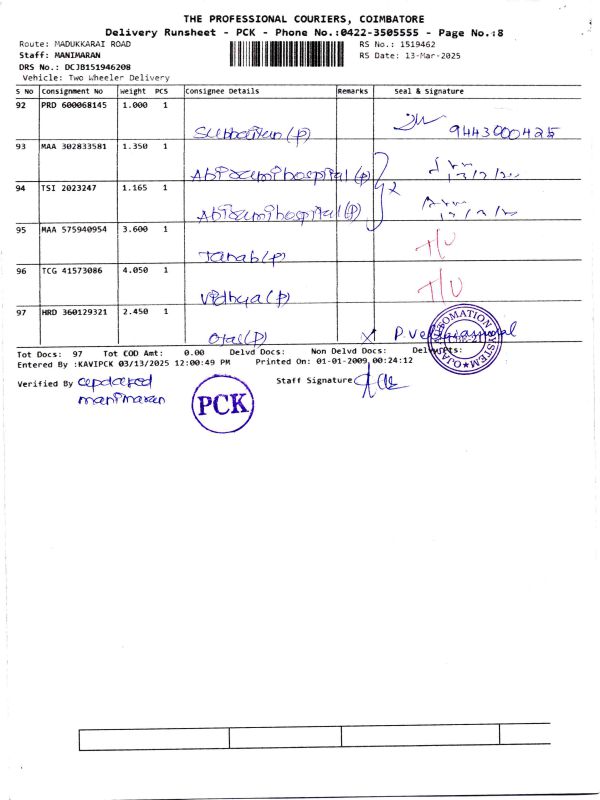 THE PROFESSIONAL COURIERS, COIMBATORE
Delivery Runsheet - PCK - Phone No.:0422-3505555 - Page No.:8
Route: MADUKKARAI ROAD RS No.: 1519462
Staff: MANIMARAN RS Date: 13-Mar-2025
DRS No.: DCJB151946208
Vehicle: Two Wheeler Delivery
S No Consignment No Weight PCS Consignee Details Remarks Seal & Signature
92 PRD 600068145 1.000 1
9443000425
93 MAA 302833581 1.350 1
Abiramihospital (p)
94 TSI 2023247 1.165 1 2
Abiramihospital (p)
95 MAA 575940954 3.600 1 T/U
(p)
96 TCG 41573086 4.050 1 T/U
Vidhya (p)
97 HRD 360129321 2.450 1
(p) X
Tot Docs: 97 Tot COD Amt: 0.00 Delvd Docs: Non Delvd Docs:
Entered By :KAVIPCK 03/13/2025 12:00:49 PM Printed On: 01-01-2009,00:24:12
Verified By Staff Signature
manimaran
PCK